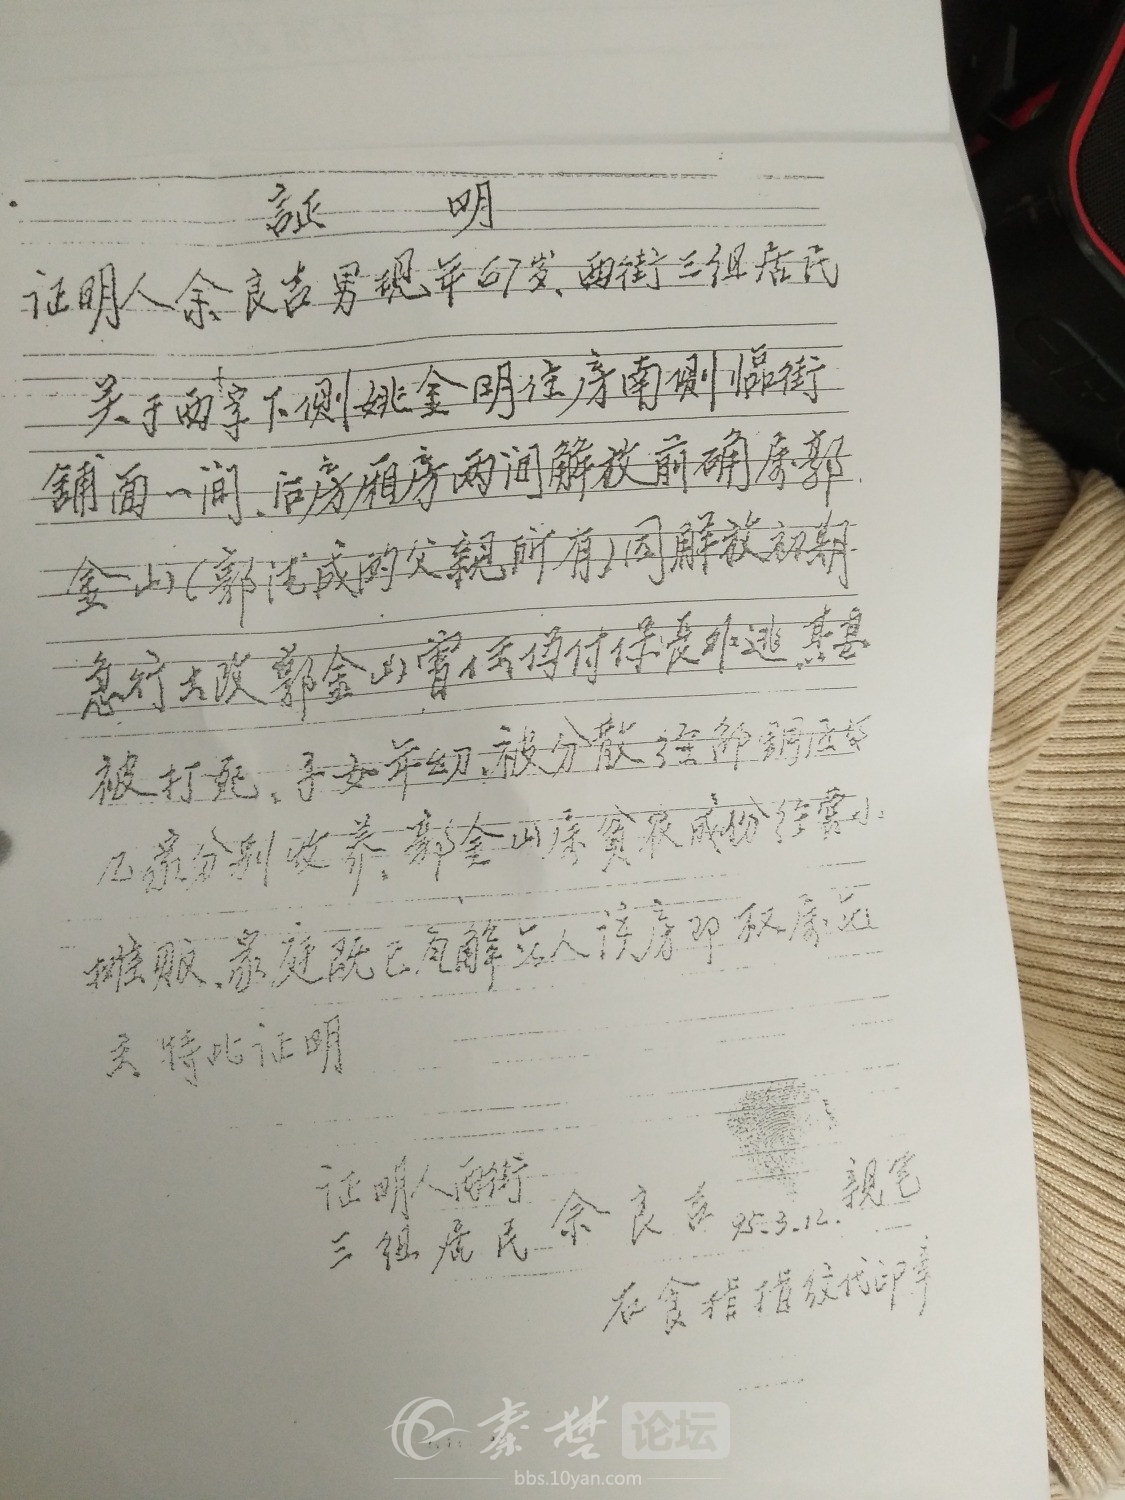 証 明
证明人余良吉男现年67岁、西街三组居民
关于西字下侧姚金明住房南侧临街
铺面一间、后房厢房两间解放前确属郭
金山(郭法成的父亲所有)同解放初期
急行土改郭金山曾任伪付保长外逃其妻
被打死、子女年幼、被分散
几家分别收养、郭金山属贫农成份经营小
摊贩、家庭既已瓦解 该房 权属
特此证明
证明人西街
三组居民 余良吉 95.3.12. 亲笔
右食指指纹代印章
秦楚论坛
bbs.10yan.com